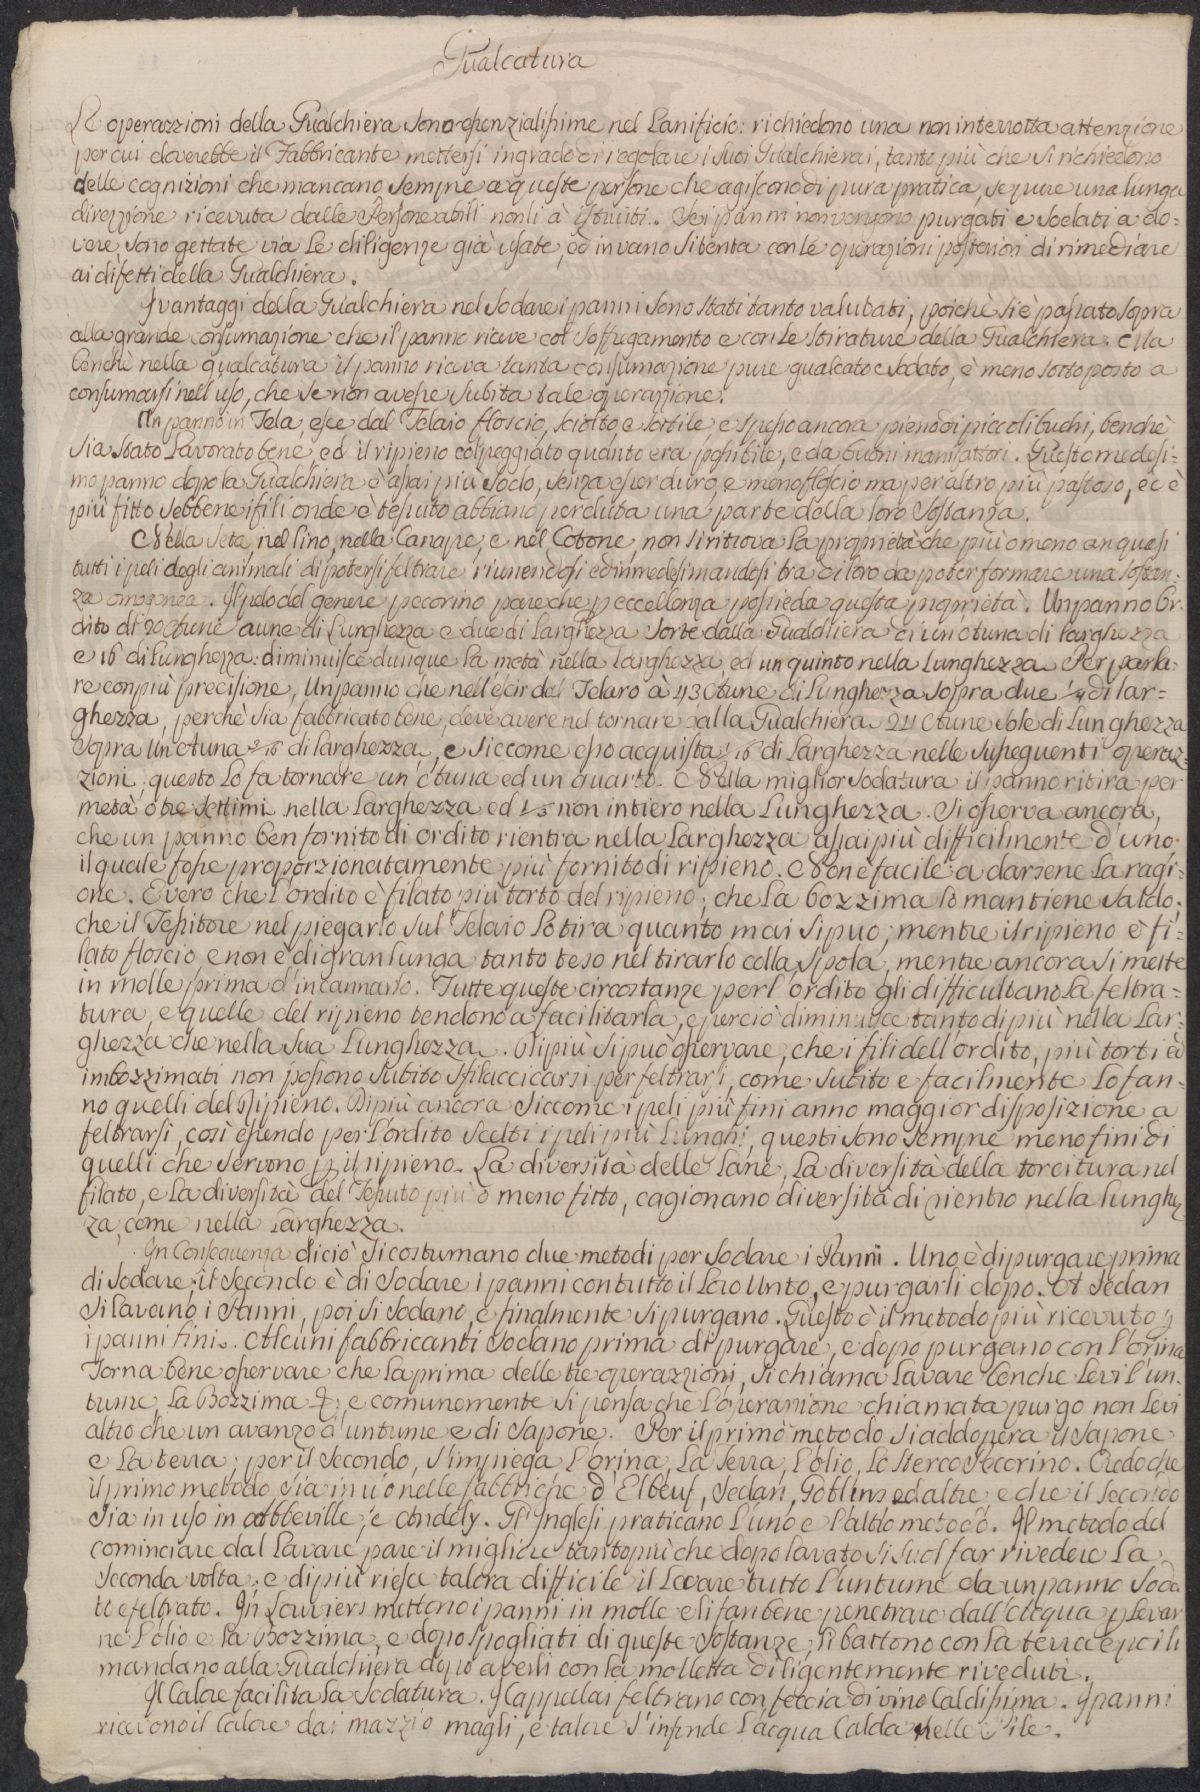 Gualcatura
Le operazzioni della Gualchiera sono essenzialissime nel Lanificio: richiedono una non interrotta attenzione
per cui doverebbe il Fabbricante mettersi in grado di regolare i suoi Gualchierai, tanto più che si richiedono
delle cognizioni che mancano sempre a queste persone che agiscono di pura pratica, se pure una lunga
direzzione ricevuta dalle Persone abili non li à istruiti. Se i panni non vengono purgati e sodati a do=
vere, sono gettate via le diligenze già usate, ed in vano si tenta con le operazioni posteriori di rimediare
ai difetti della Gualchiera.
I vantaggi della Gualchiera nel sodare i panni sono stati tanto valutati, poichè si è passato sopra
alla grande consumazione che il panno riceve col soffregamento e con le stirature della Gualchiera. Ma
benchè nella gualcatura il panno riceva tanta consumazione pure gualcato e sodato, è meno sottoposto a
consumarsi nell'uso, che se non avesse subita tale operazione.
Un panno in Tela, esce dal Telaio floscio, sciolto e sottile, e spesso ancora pieno di piccoli buchi, benchè
sia stato Lavorato bene, ed il ripieno colpeggiato quanto era possibile, e da buoni manifattori. Questo medesi=
mo panno dopo la Gualchiera è assai più sodo, senza esser duro, e meno floscio ma per altro più pastoso, ed è
più fitto sebbene i fili onde è tessuto abbiano perduta una parte della loro sostanza.
Nella Seta, nel Lino, nella Canape, e nel Cotone, non si ritrova la proprietà che più o meno an quasi
tutti i peli degli animali di potersi feltrare riunendosi ed inmedesimandosi tra di loro da poter formare una sostan=
za omogenea. Il pelo del genere pecorino pare che p eccellenza possieda questa proprietà. Un panno Or=
dito di 20 aune di Lunghezza e due di Larghezza sorte dalla Gualchiera di un'auna di larghezza
e 16 di Lunghezza: diminuisce dunque la metà nella Larghezza, ed un quinto nella Lunghezza. Per parla=
re con più precisione, Un panno che nell'escir dal Telaro à 43 Aune di Lunghezza sopra due 1/4 di lar=
ghezza, perchè sia fabbricato bene, deve avere nel tornare dalla Gualchiera 24 Aune sole di Lunghezza
sopra un'auna di larghezza, e siccome esso acquista di Larghezza nelle susseguenti operaz=
zioni, questo lo fa tornare un'auna ed un quarto. Nella miglior sodatura il panno ritira per
metà o tre settimi nella Larghezza ed 1/5 non intiero nella Lunghezza. Si osserva ancora,
che un panno ben fornito di ordito rientra nella Larghezza assai più difficilmente d'uno
il quale fosse proporzionatamente più fornito di ripieno. Non è facile a darsene la ragi=
one. È vero che l'ordito è filato più torto del ripieno; che la bozzima lo mantiene saldo;
che il Tessitore nel piegarlo sul Telaio lo tira quanto mai si può; mentre il ripieno è fi=
lato floscio e non è di gran lunga tanto teso nel tirarlo colla spola, mentre ancora si mette
in molle prima d'incannarlo. Tutte queste circostanze per l'ordito gli difficultano la feltra=
tura, e quelle del ripieno tendono a facilitarla, e perciò diminuisce tanto di più nella Lar=
ghezza che nella sua Lunghezza. Di più si può osservare, che i fili dell'ordito, più torti ed
imbozzimati non possono subito sfilaccicarsi per feltrarsi, come subito e facilmente lo fan=
no quelli del ripieno. Di più ancora siccome i peli più fini anno maggior disposizione a
feltrarsi, così essendo per l'ordito scelti i peli più lunghi, questi sono sempre meno fini di
quelli che servono p il ripieno. La diversità delle Lane, La diversità della torcitura nel
filato, e la diversità del Tessuto più o meno fitto, cagionano diversità di rientro nella lunghez
za, come nella Larghezza.
In conseguenza di ciò si costumano due metodi per sodare i Panni. Uno è di purgare prima
di sodare; il secondo è di sodare i panni con tutto il loro Unto, e purgarli dopo. A Sedan
si lavano i Panni, poi si sodano, e finalmente si purgano. Questo è il metodo più ricevuto p
i panni fini. Alcuni fabbricanti sodano prima di purgare, e dopo purgano con l'orina
Torna bene osservare che la prima delle tre operazzioni, si chiama Lavare benche levi l'un=
tume, la Bozzima &, e comunemente si pensa che l'operazione chiamata purgo non levi
altro che un avanzo d'untume e di sapone. Per il primo metodo si addopera il Sapone
e la terra; per il secondo, s'impiega l'orina, la Terra, l'olio, lo sterco Pecorino. Credo che
il primo metodo sia in uso nelle fabbriche d'Elbeuf, Sedan, Goblins ed altre e che il secondo
sia in uso in Abbeville, e Andely. Gl'Inglesi praticano l'uno e l'altro metodo. Il metodo del
cominciare dal Lavare pare il migliore tanto più che dopo lavato si suol far rivedere la
seconda volta, e di più riesce talora difficile il Levare tutto l'untume da un panno soda
to e feltrato. In Louviers mettono i panni in molle e li fan bene penetrare dall'acqua p levar
ne l'olio e la Bozzima, e dopo spogliati di queste sostanze, li battono con la terra e poi li
mandano alla Gualchiera dopo averli con la molletta diligentemente riveduti.
Il Calore facilita la sodatura. I Cappellai feltrano con feccia di vino Caldissima. I panni
ricevono il Calore dai mazzi o magli, e talora s'infonde l'acqua Calda nelle Pile.